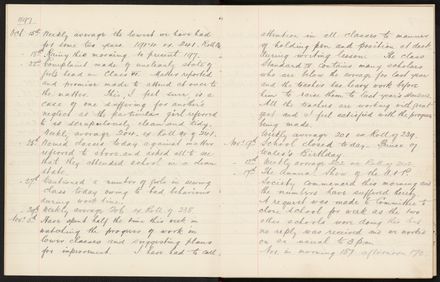 1897.
Oct. 15th Weekly average the lowest we have had
for some two years. 197.11 ex 241. Roll
19th Rainy this morning to present 187.
22nd Complaint made of uncleanly state of
girls head in Class III. Mother reported
and promise made to attend at once to
the matter. This, I feel sure is a
case of one suffering for another's
neglect as the particular girl referred
to is scrupulously clean and tidy.
Weekly average 204. ex Roll of 241.
against mother
referred to above and asked all to see
that they attended school in a clean
state.
27th Cautioned a number of girls in sewing
class today owing to bad behaviour
during work time.
29th Weekly average 206 ex Roll of 238
Nov. 5th Have spent half the time this week in
watching the progress of work in
lower classes and suggesting plans
for improvement. I have had to call
attention in all classes to manner
of holding pen and position at desk
during writing lesson. The class
Standard II contains many scholars
who are below the average for last year
and the teacher has heavy work before
him to raise them to last year's standard.
All the teachers are working with great
zeal and I feel satisfied with the progress
being made.
Weekly average 201 ex Roll of 239.
Nov. 9th School closed today. Prince of
Wales's Birthday.
12th Weekly average
17th The Annual Show of the A & P
Society commenced this morning and
the numbers have suffered
A request was made to Committee to
close school for week as the two
other schools were doing this but
no reply was received and we worked
on as usual to 3 p.m.
Nos. in morning 157 afternoon 170.